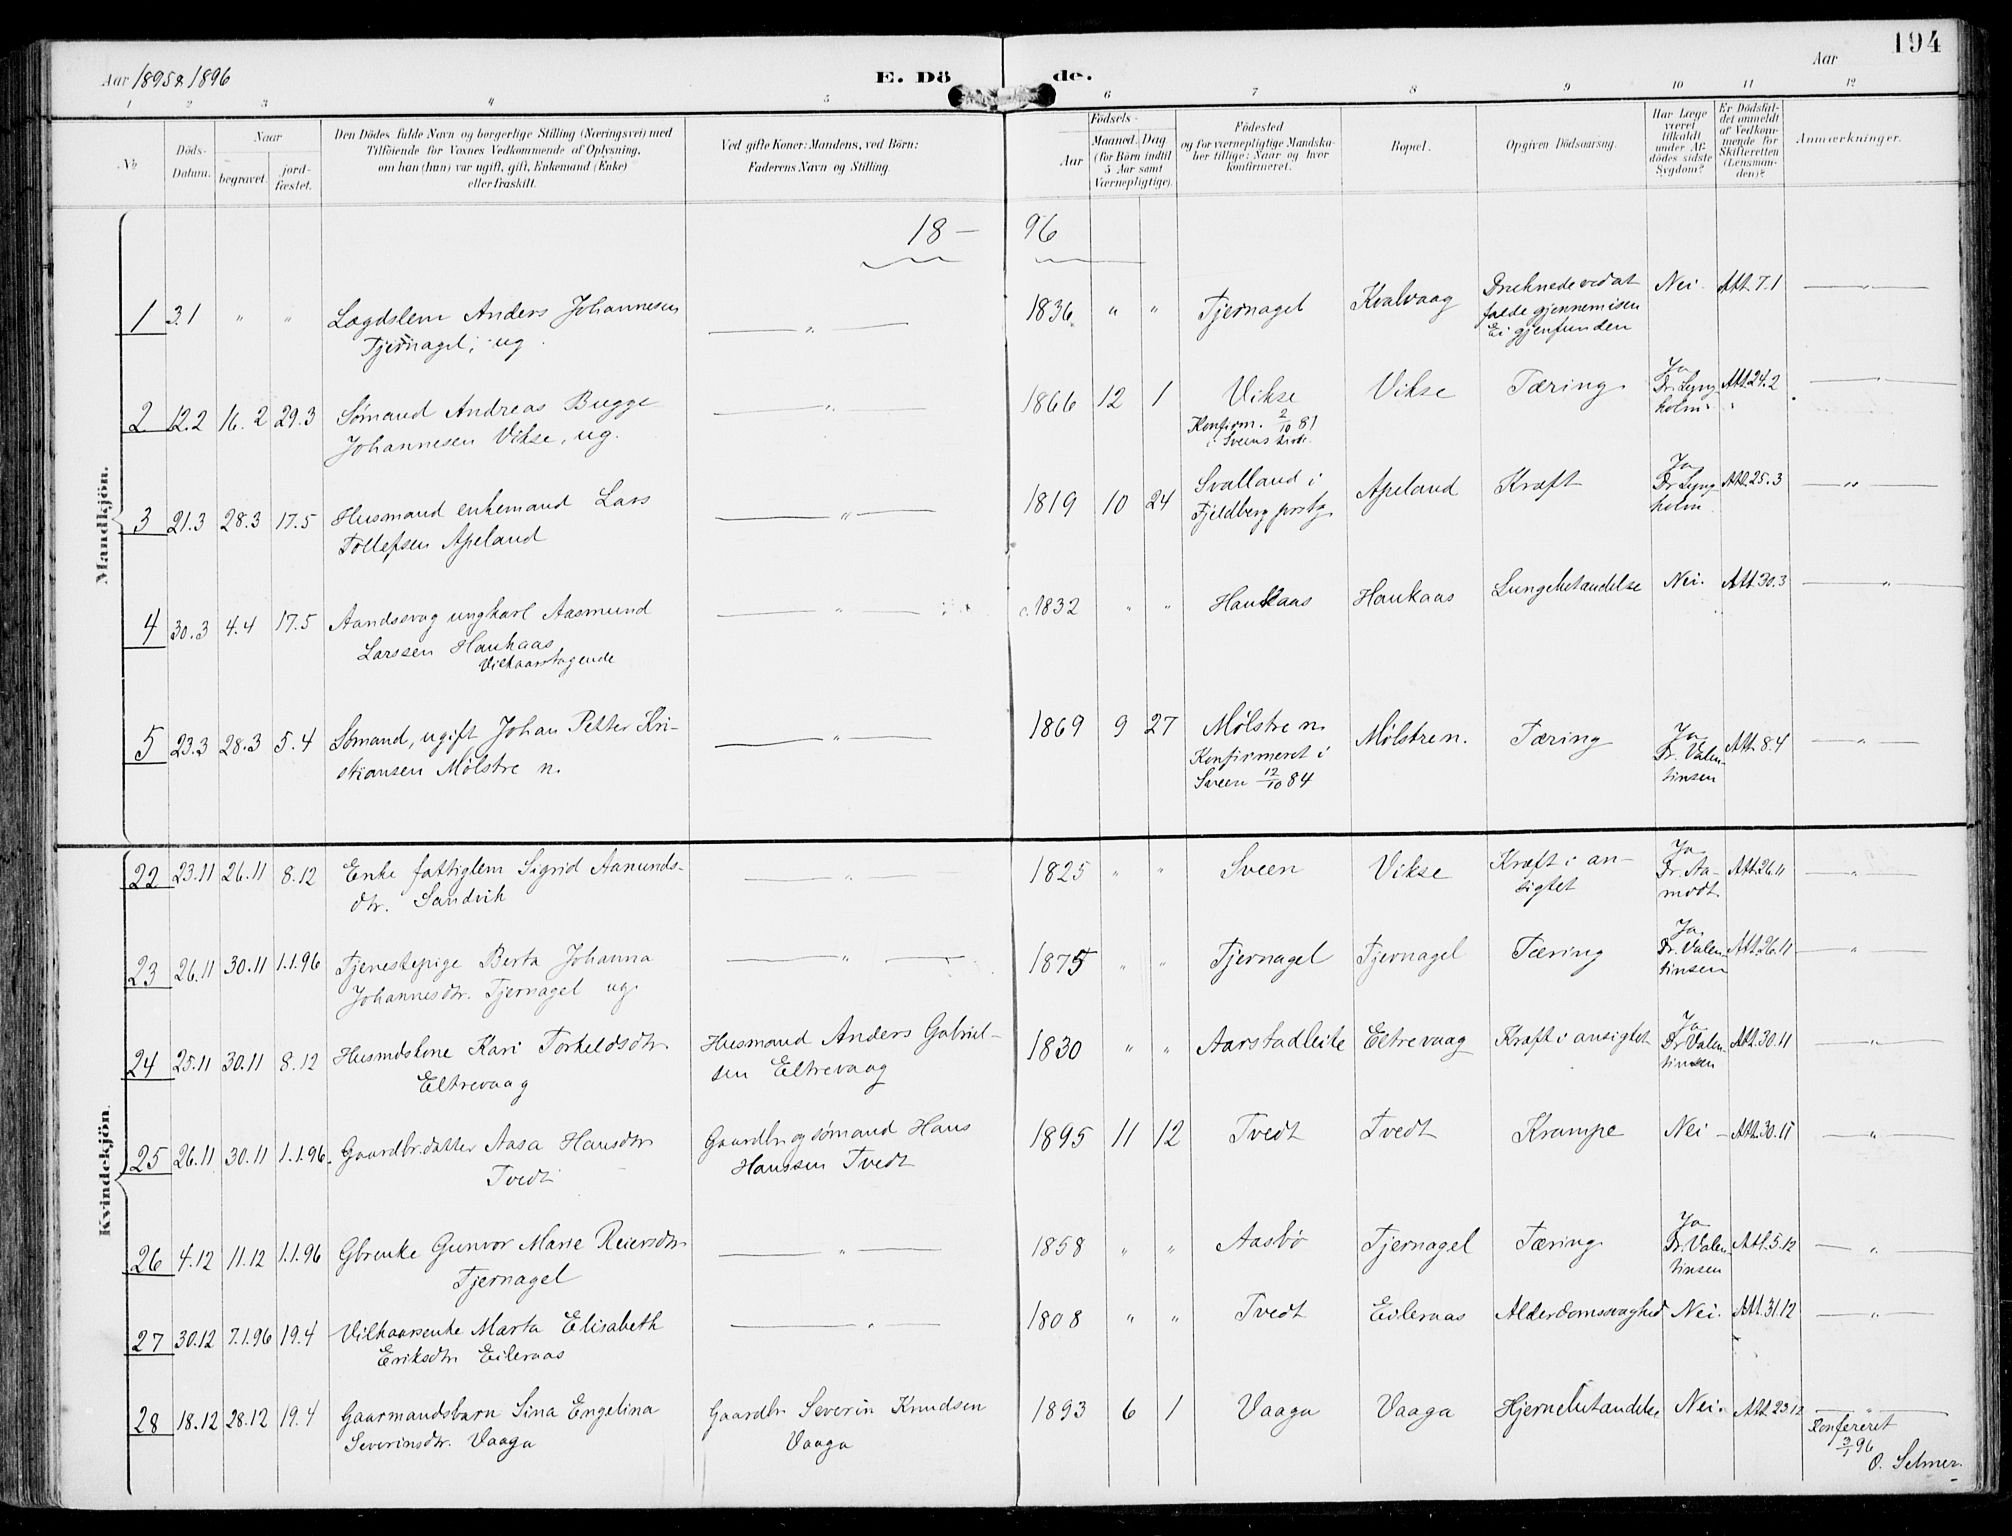 194
Aar 1895 & 1896
E. Dö de.
Aar
1 2 3 4 5 6 7 8 9 10 11 12
No
Döds-Datum.
Naar
begravet.
jord-fæstet.
Den Dödes fulde Navn og borgerlige Stilling (Næringsvei) med
Tilföiende for Voxnes Vedkommende af Oplysning,
om han (hun) var ugift, gift, Enkemand (Enke)
eller fraskilt.
Ved gifte Koner: Mandens, ved Börn:
Faderens Navn og Stilling.
Födsels-
Aar
Maaned. Dag
(for Börn indtil
5 Aar samt
Værnepligtige).
Födested
og for værnepligtige Mandska-
ber tillige: Naar og hvor
konfirmeret.
Bopæl.
Opgiven Dödsaarsag.
Har Læge
været
tilkaldt
under Af-
dödes sidste
Sygdom?
Er Dödsfal-
det anmeldt
af Vedkom-
mende for
Skifteretten
(Lensman-
den)?
Anmærkninger.
Mandkjön.
18— 96
1 3.1 " " Lægdslem Anders Johannesen
Tjernagel, ug.
" 1836 " " Tjernagel Kvalvaag Druknede ved at
falde gjennem isen
Ei gjenfunden
Nei. Att. 7.1 "
2 12.2 16.2 29.3 Sømand Andreas Bugge
Johannesen Vikse, ug.
" 1866 12 1 Vikse
Konfirm. 2/10 81
i Sveens kirke.
Vikse Tæring Ja
Dr. Lyng
holm.
Att. 24.2 "
3 21.3 28.3 17.5 Husmand enkemand Lars
Tollefsen Apeland
" 1819 10 24 Svalland i
Fjeldberg prstg.
Apeland Kræft Ja
Dr. Lyng
holm.
Att. 25.3 "
4 30.3 4.4 17.5 Aandssvag ungkarl Aasmund
Larssen Haukaas
Vilkaarstagende
" c. 1832 " " Haukaas Haukaas Lungebetændelse Nei. Att. 30.3 "
5 23.3 28.3 5.4 Sømand, ugift Johan Petter Kri-
stiansen Mølstre n.
" 1869 9 27 Mølstre n.
Konfirmeret i
Sveen 12/10 84
Mølstre n. Tæring Ja
Dr. Valen-
tinsen
Att. 8.4 "
Kvindekjön.
22 23.11 26.11 8.12 Enke fattiglem Sigrid Aamunds-
dtr. Sandvik
" 1825 " " Sveen Vikse Kræft i an-
sigtet
Ja
Dr. Aa-
modt.
Att. 26.11 "
23 26.11 30.11 1.1.96 Tjenestepige Berta Johanna
Johannesdtr. Tjernagel ug.
" 1875 " " Tjernagel Tjernagel Tæring Ja.
Dr. Valen
tinsen
Att. 26.11 "
24 25.11 30.11 8.12 Husmdskone Kari Torkeldsdtr.
Eltrevaag
Husmand Anders Gabriel-
sen Eltrevaag
1830 " " Aarstadleite Eltrevaag Kræft i ansigtet Ja
Dr. Valen-
tinsen
Att. 30.11 "
25 26.11 30.11 1.1.96. Gaardbr. datter Aasa Hansdtr.
Tvedt
Gaardbr. og sømand Hans
Hanssen Tvedt
1895 11 12 Tvedt Tvedt Krampe Nei - Att. 30.11 "
26 4.12 11.12 1.1.96 Gbrenke Gunvor Marie Reiersdtr.
Tjernagel
" 1858 " " Aasbø Tjernagel Tæring Ja
Dr. Valen-
tinsen
Att. 5.12 "
27 30.12 7.1.96 19.4 Vilkaarsenke Marta Elisabeth
Eriksdtr. Eileraas
" 1808 " " Tvedt Eileraas Alderdomssvaghed Nei. Att. 31.12 "
28 18.12 28.12 19.4 Gaarmandsbarn Sina Engelina
Severinsdtr. Vaaga
Gaardbr. Severin Knudsen
Vaaga
1893 6 1 Vaaga Vaaga Hjernebetændelse Nei. Att. 23.12 "
Konfereret
3/1 96
O. Selmer.